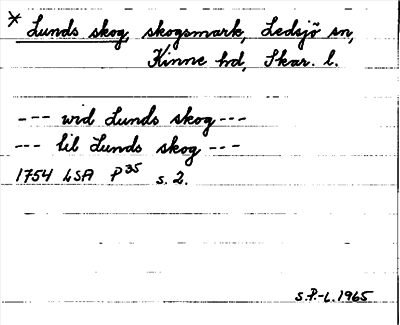 * Lunds skog, skogsmark, Ledsjö sn,
Kinne hd, Skar. l.
--- wid Lunds skog ---
--- til Lunds skog ---
1754 LSA P35 s. 2.
S.P.-L. 1965